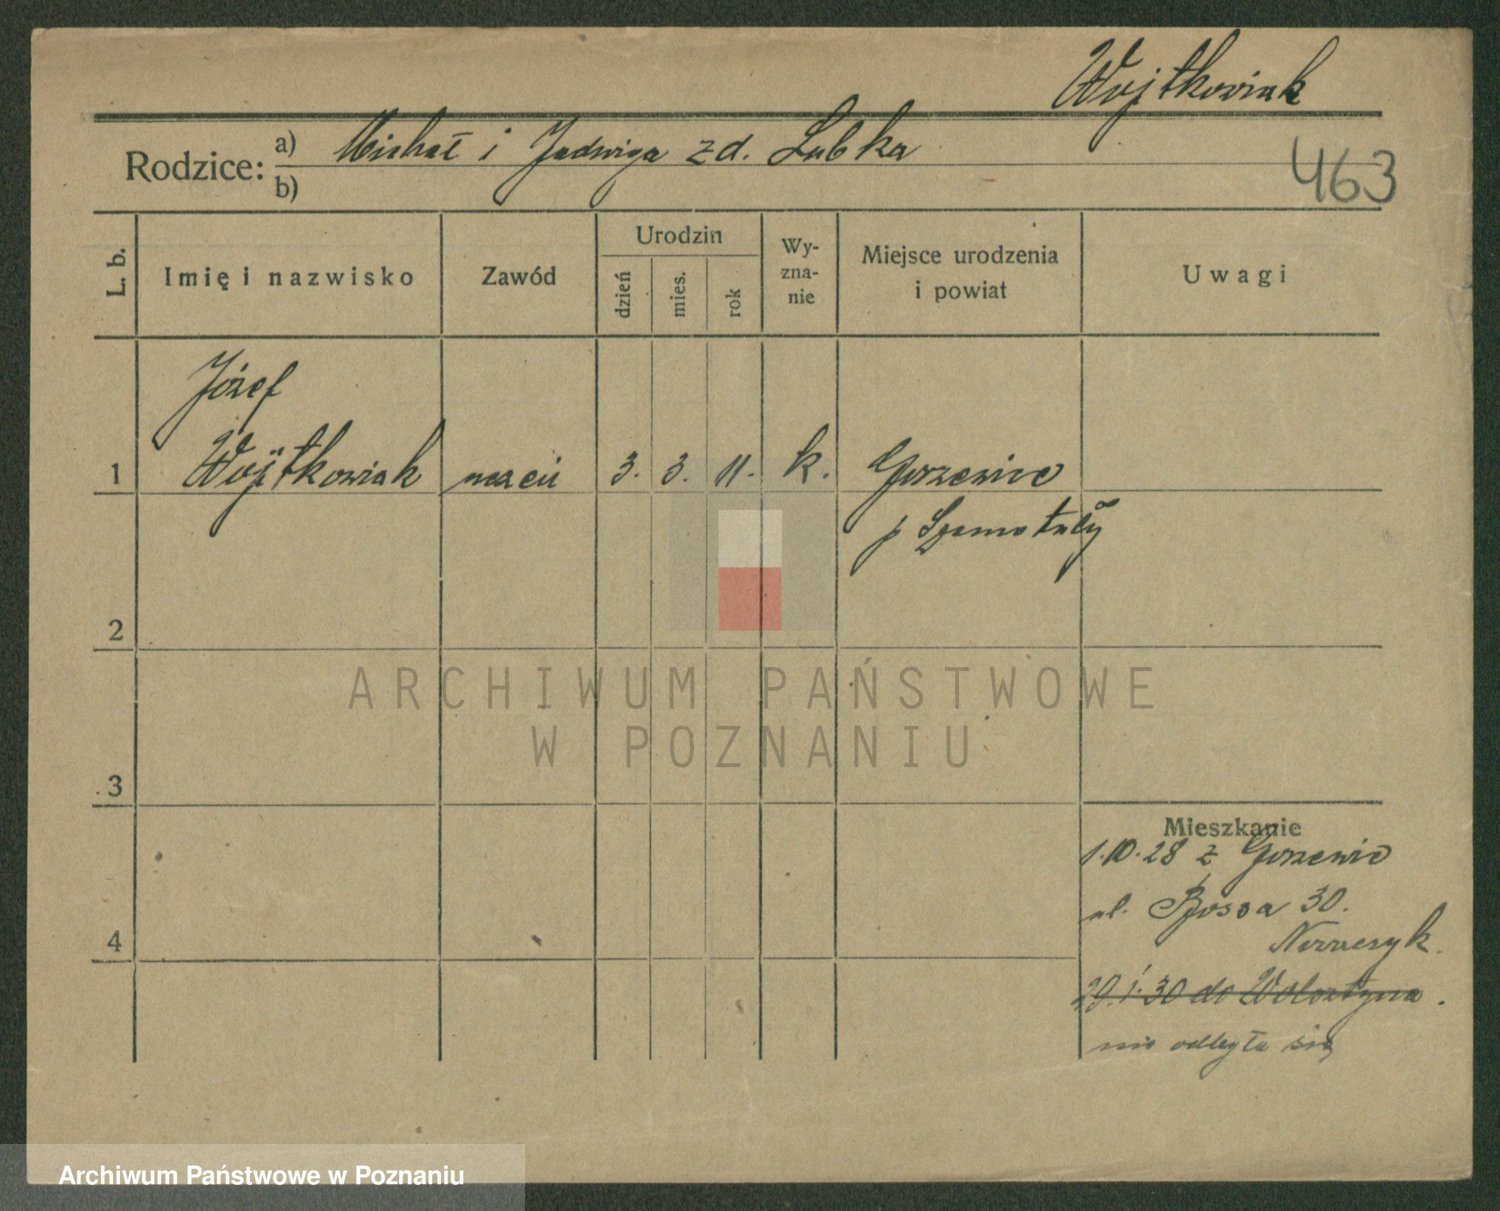 Wojtkowiak
Rodzice: a) Michał i Jadwiga zd. Lubka
b)
463
L. b.
Imię i nazwisko
Zawód
Urodzin
dzień
mies.
rok
Wy-
zna-
nie
Miejsce urodzenia
i powiat
Uwagi
Józef
1 Wojtkowiak 3. 3. 11. k. Gorzewice
p Szamotuły
2
3
4
Mieszkanie
1.10.28 z Gorzewic
ul. 30.
29.1.30 do Wolsztyna.
nie odbyła się
ARCHIWUM PAŃSTWOWE
W POZNANIU
Archiwum Państwowe w Poznaniu